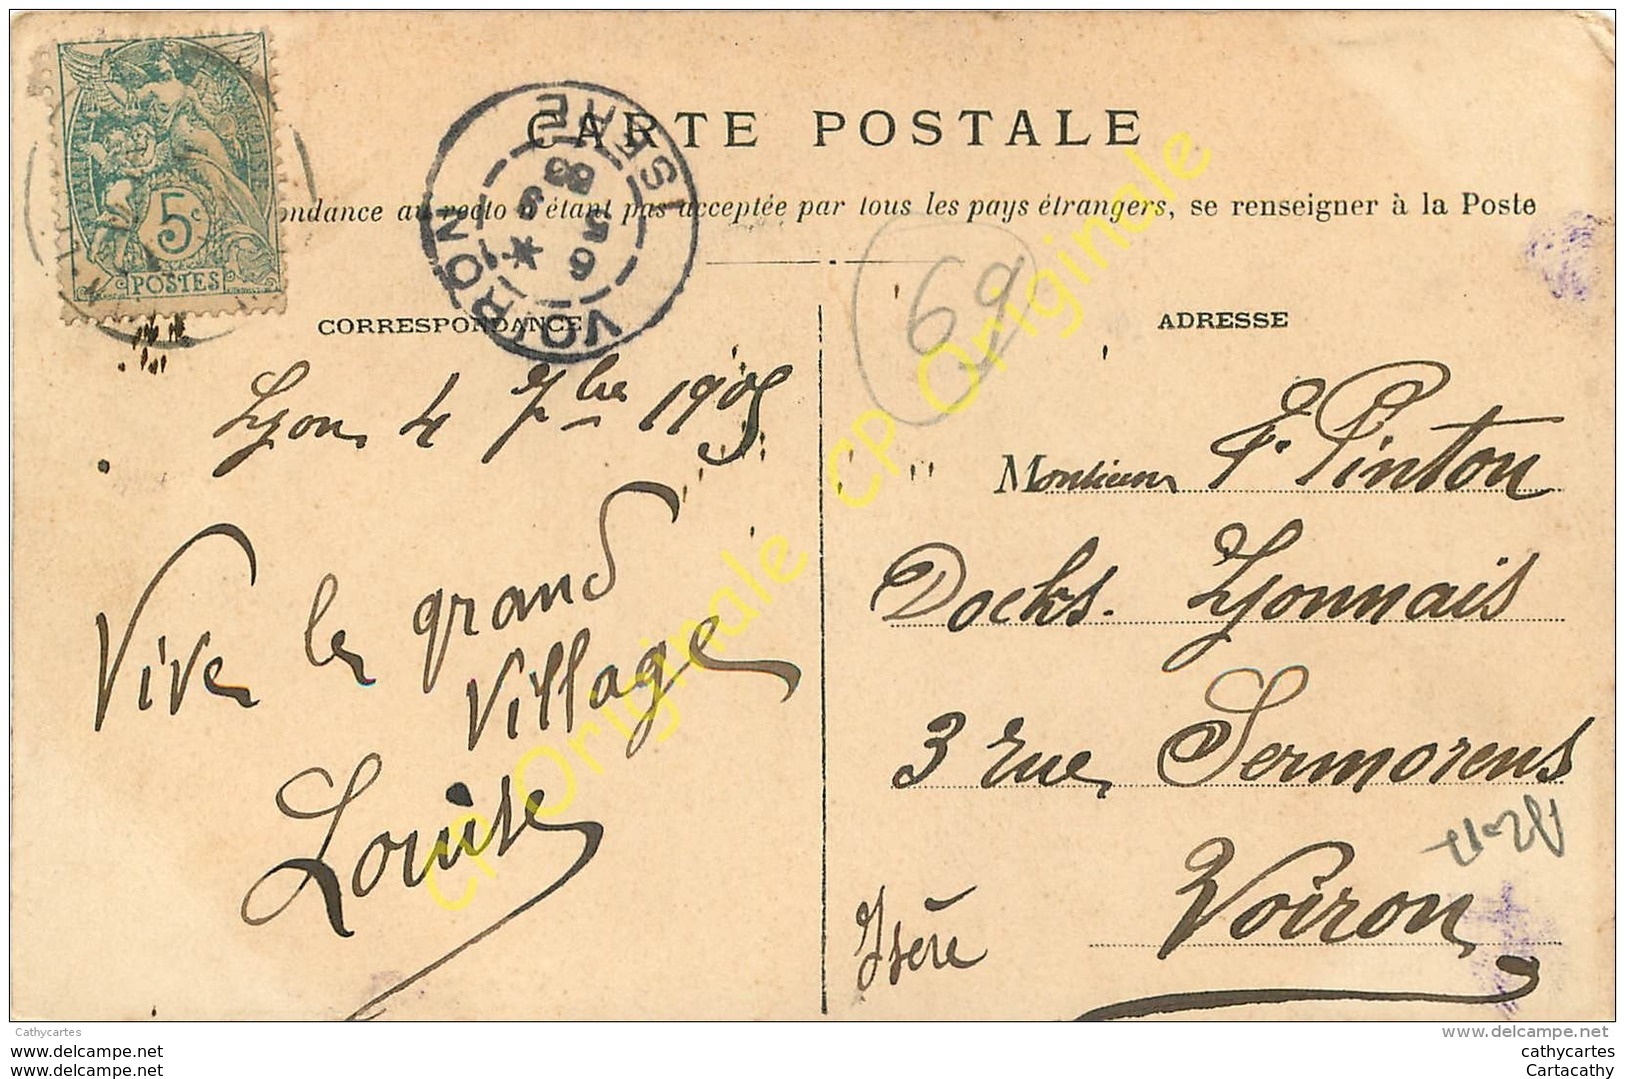 CARTE POSTALE
ondance au recto n'étant pas acceptée par tous les pays étrangers, se renseigner à la Poste
5c
POSTES
VOIRON
ISERE
6
CORRESPONDANCE
ADRESSE
69
Lyon 4 7bre 1905
Vive le grand
Village
Louise
Monsieur F. Pinton
Docks. Lyonnais
3 rue Sermorens
Voiron
Isère
CP Originale CP Originale
Cathycartes
www.delcampe.net
www.delcampe.net
cathycartes
www.delcampe.net
Cartacathy